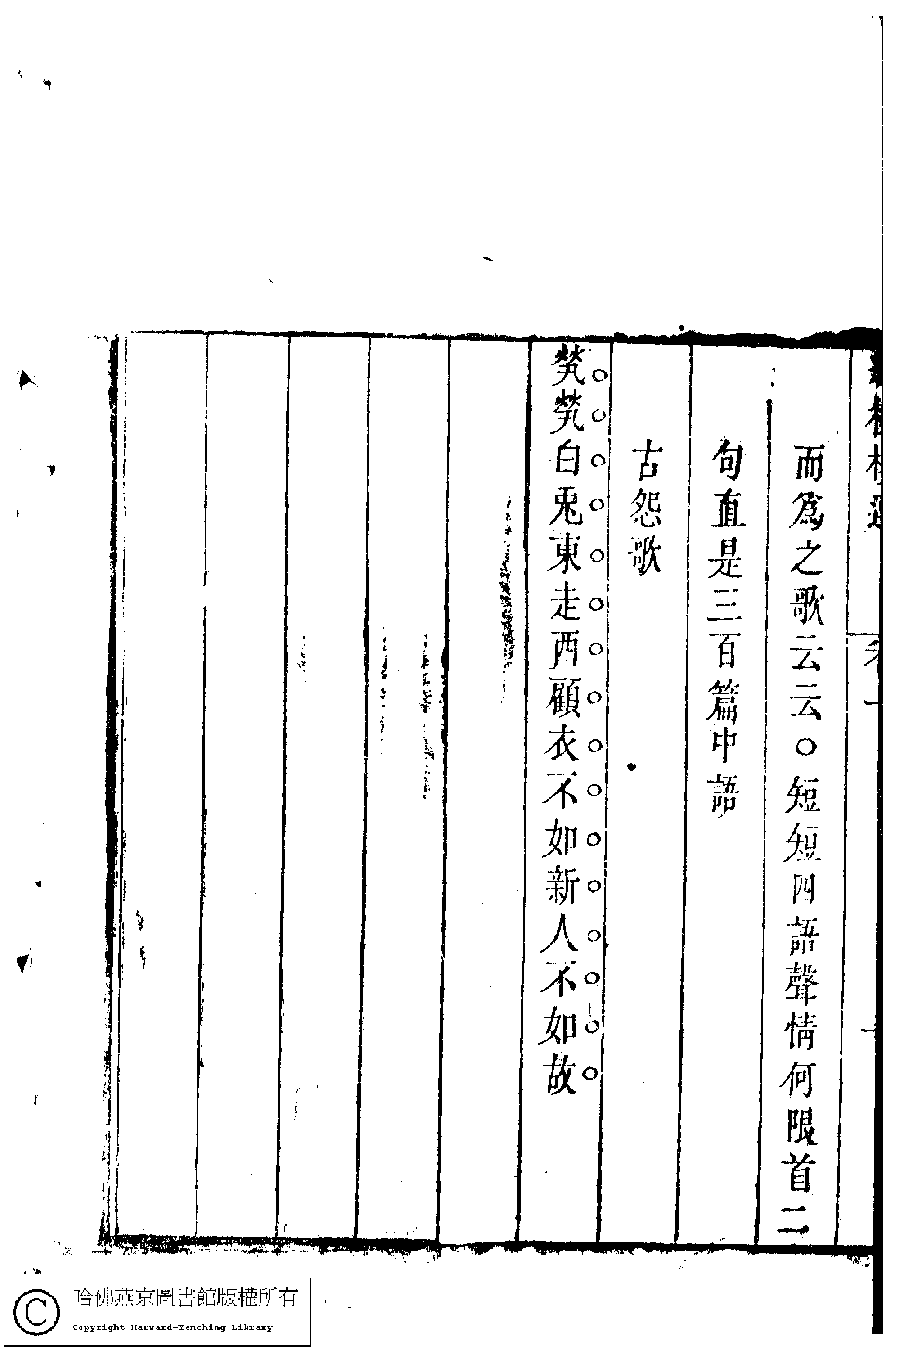 而爲之歌云云○短短四語聲情何限首二
句直是三百篇中語
古怨歌
煢煢白兎東走西顧衣不如新人不如故
哈佛燕京圖書館版權所有
Copyright Harvard-Yenching Library